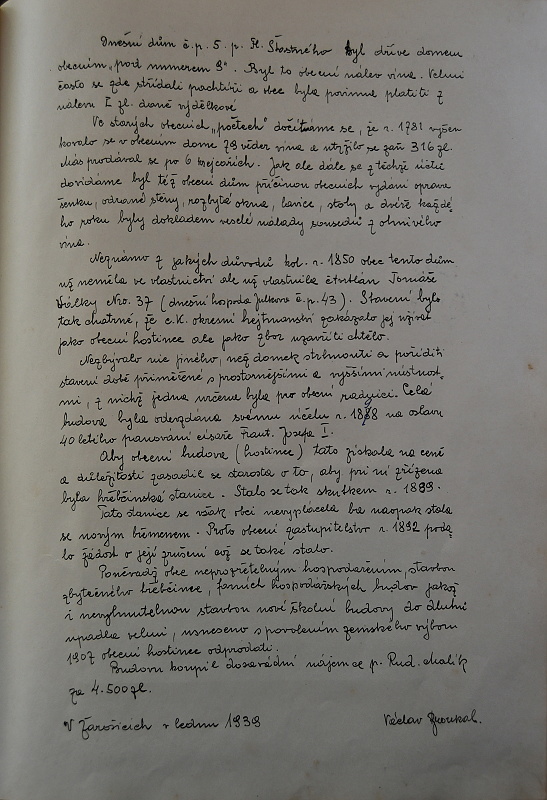 Dnešní dům č.p. 5. p. St. Šťastného byl dříve domem
obecním „pod numerem 9". Byl to obecní nálev vína. Velmi
často se zde střídali pachtýři a obec byla povinna platiti z
nálevu 1 zl. daně výdělkové
Ve starých obecních „počtech" dočítáme se, že r. 1781 vyšen
kovalo se v obecním domě 79 věder vína a utržilo se zaň 316 zl.
Mas prodával se po 6 krejcařích. Jak ale dále se z těchže účtů
dovídáme byl též obecní dům příčinou obecních vydání oprava
šenku, odrané stěny, rozbytá okna, lavice, stoly a dveře každé-
ho roku byly dokladem veselé nálady sousedů z ohnivého
vína.
Neznámo z jakých důvodů kol. r. 1850 obec tento dům
už neměla ve vlastnictví ale už vlastnila čtvrtlán Tomáše
Války Nro. 37 (dnešní hospoda Julkova č.p. 43). Stavení bylo
tak chatrné, že c.K. okresní hejtmanství zakázalo jej užívat
jako obecní hostinec ale jako zbor uzavříti chtělo.
Nezbývalo nic jiného, než domek strhnouti a poříditi
stavení době přiměřené s prostornějšími a vyššími místnost-
mi, z nichž jedna určena byla pro obecní radnici. Celá
budova byla odevzdána svému účelu r. 1888 na oslavu
40 letého panování císaře Frant. Josefa I.
Aby obecní budova (hostinec) tato získala na ceně
a důležitosti zasadil se starosta o to, aby při ní zřízena
byla hřebčinská stanice. Stalo se tak skutkem r. 1889.
Tato stanice se však obci nevyplácela ba naopak stala
se novým břemenem. Proto obecní zastupitelstvo r. 1892 podá-
lo žádost o její zrušení což se také stalo.
Poněvadž obec neprozřetelným hospodařením, stavbou
zbytečného hřebčince, farních hospodářských budov jakož
i nevyhnutelnou stavbou nové školní budovy do dluhů
upadla velmi, usneseno s povolením zemského výboru
1907 obecní hostinec odprodati.
Budovu koupil dosavádní nájemce p. Rud. Malík
za 4.500 zl.
V Žarošicích v lednu 1939 Václav